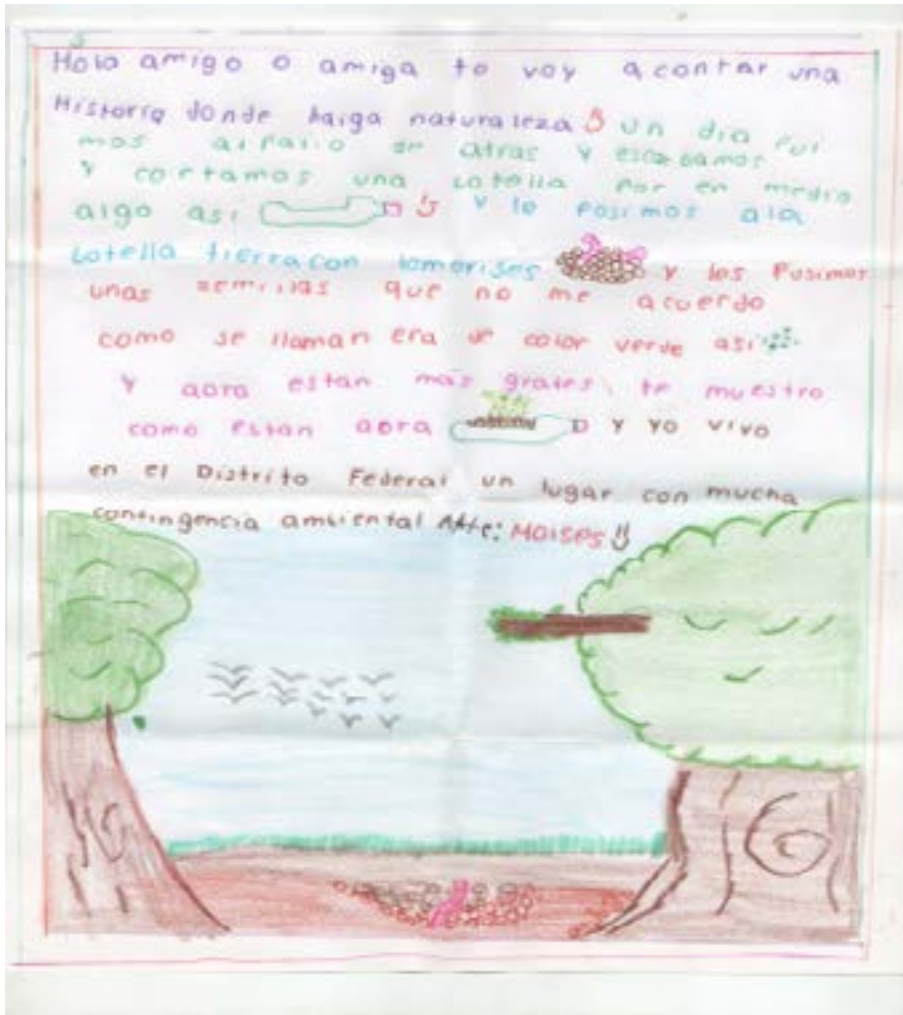 Hola amigo o amiga te voy a contar una
Historia donde haiga naturaleza un dia fui
mos al patio de atras y escarbamos
y cortamos una botella por en medio
algo asi y le posimos ala
botella tierra con lombrises y les pusimos
unas semillas que no me acuerdo
como se llaman era de color verde asi
y aora estan más grates, te muestro
como estan aora y yo vivo
en el Distrito Federal un lugar con mucha
contingencia ambiental Atte: Moises